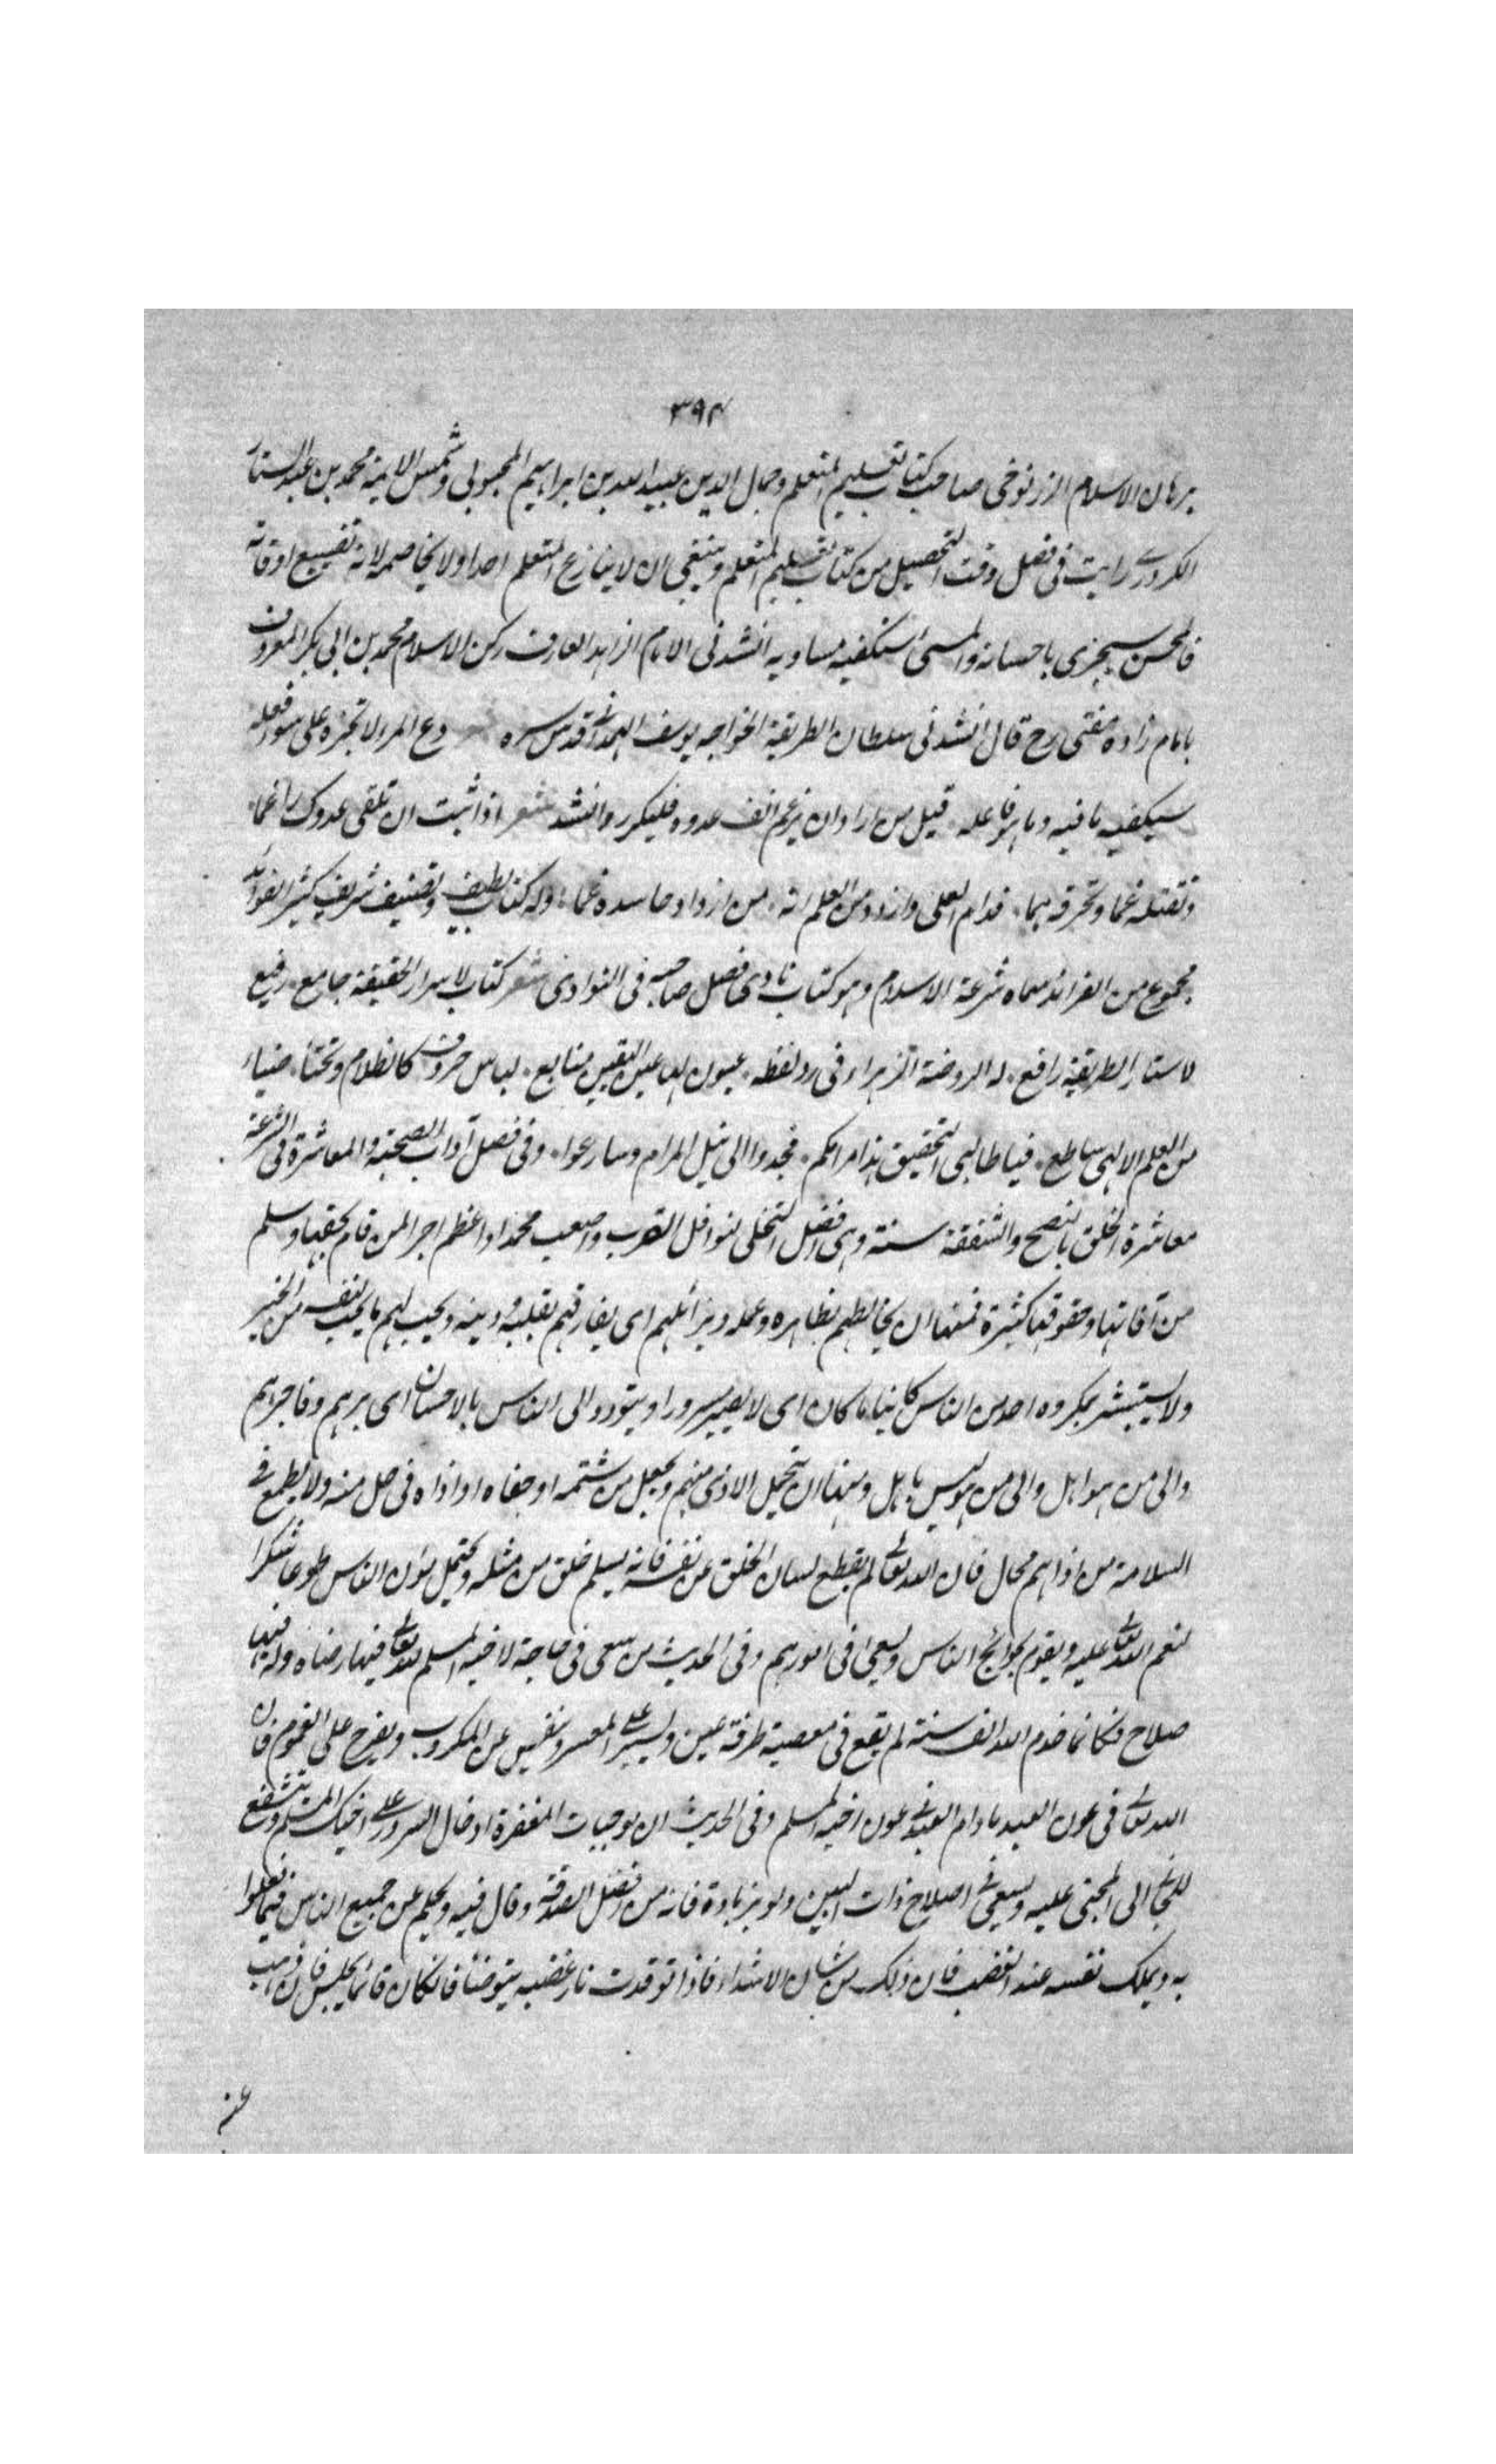 ٣٩٤
برهان الاسلام الزرنوخى صاحب كتاب تعليم المتعلم وجمال الدين عبيد الله بن ابراهيم المحبوبى وشمس الايمة محمد بن عبد الستار
الكردرے رايت فى فصل وقت التحصيل من كتاب تعليم المتعلم وينبغى ان لا ينازع المتعلم احدا ولا يخاصمه لانه تضييع اوقاته
فالمحسن سيجزى باحسانه والمسئ ستكفيه مساويه انشدنى الامام الزاهد العارف ركن الاسلام محمد بن ابى بكر المعروف
بامام زاده مفتى رح قال انشدنى سلطان الطريقة الخواجه يوسف الهمدانے قدس سره دع المرء لا تجزه على سوء فعله
سيكفيه ما فيه وما هو فاعله قيل من اراد ان يرغم انف عدوه فليكرر وانشد شعر اذا شئت ان تلقى عدوك راغما
وتقتله غما وتحرقه هما فدام للعلى وازدد من العلم انه من ازداد حاسده غما وله كتاب لطيف وتصنيف شريف كثير الفوائد
مجموع من الفرائد سماه شرعة الاسلام وهو كتاب نادى فضل صاحبه فى النوادى شعر كتاب لاسرار الحقيقة جامع رفيع
لاستار الطريقة رافع له الروضة الزهراء فى رد لفظه عيون لها عين اليقين منابع لباس حروف كالظلام وتحتها ضياء
من العلم الالهى ساطع فيا طالبى التحقيق هذا مرامكم فجدوا الى نيل المرام وسارعوا وفى فصل آداب الصحبة والمعاشرة فى الشرعة
معاشرة الخلق بالنصح والشفقة سنة وهى افضل التخلى لنوافل القرب واصعب محمدا واعظم اجرا لمن قام بحقها وسلم
من آفاتها وحقوقها كثيرة فمنها ان يخالطهم بظاهره وعمله ويزائلهم اى يفارقهم بقلبه ودينه ويحب لهم ما يحب لنفسه من الخير
ولا يستبشر بمكروه احد من الناس كائنا ما كان اى لا يصير مسرورا ويتودد الى الناس بالاحسان اى برهم وفاجرهم
والى من هو اهل والى من هو ليس باهل ومنها ان يتحمل الاذى منهم ويجعل من شتمه او جفاه او اذاه فى حل منه ولا يطمع فے
السلامة من اذاهم محال فان الله تعالے لم يقطع لسان الخلق عن نفسه فانه يسلم خلق من مثله ويحتمل مؤن الناس طوعا شكرا
لنعم الله تعالے عليه ويقوم بحوائج الناس ويسعى فى امورهم وفى الحديث من سعى فى حاجة لاخيه المسلم لله تعالے فيها رضاه وله فيها
صلاح فكانما خدم الله الف سنة لم يقع فى معصية طرفة عين وييسر علے المعسر وينفس عن المكروب ويفرح على الغموم فان
الله تعالے فى عون العبد ما دام العبد فے عون اخيه المسلم وفى الحديث ان موجبات المغفرة ادخال السرور علے اخيك المسلم ويتشفع
للجانے الى المجنى عليه ويسعى فے اصلاح ذات البين ولو بزيادة فانه من افضل الصدقة وقال فيه ويحلم عن جميع الناس فيما فعلوا
به ويملك نفسه عند الغضب فان ذلك من شان الاشداء فاذا توقدت نار غضبه يتوضأ فان كان قائما يجلس فان ذهب
عنه